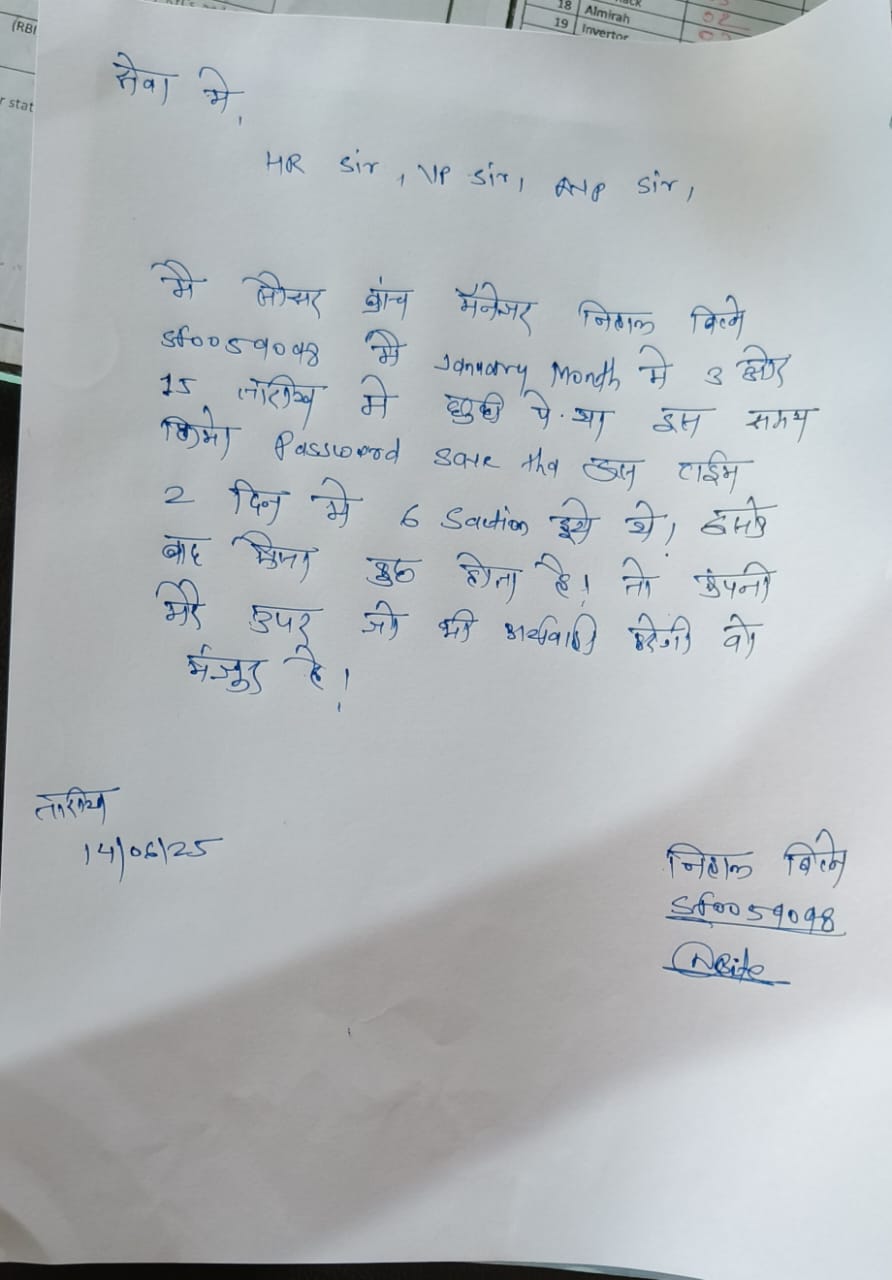 (RBI
r stat
18 Almirah 02
19 Invertor
सेवा मे,
HR Sir, VP Sir, AVP Sir,
मै ब्रांच मॅनेजर निहाल बिते
मे January Month मे 3 और
15 तारीख मे छुट्टी पे था इस समय
Password save tha उस टाईम
2 दिन मे 6 Saction हुये थे, इसके
बाद कुछ होता है। तो कंपनी
मेरे उपर जो भी कार्यवाही करेगी वो
मंजुर है।
तारीख
14/06/25
निहाल बिते